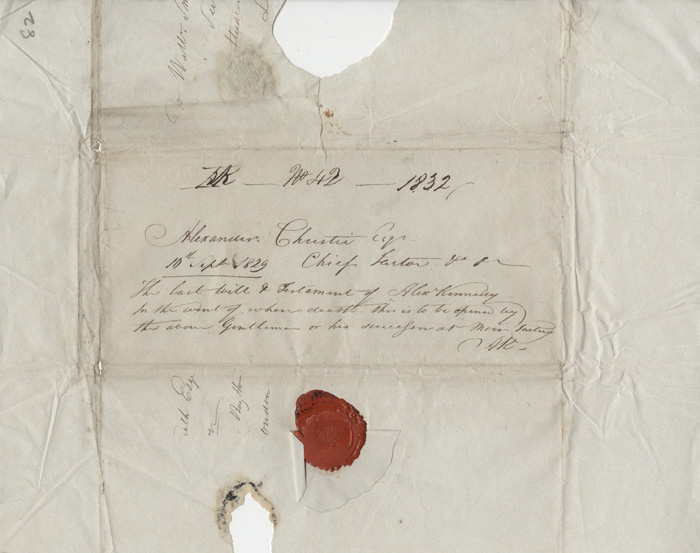 28
AK — No 42 — 1832
Alexander Christie Esqr
10th Sept 1829 Chief Factor &c &c
The last Will & Testament of Alexr Kennedy
In the event of whose death this is to be opened by
the above Gentleman or his successor at Moose Factory
AK
Smith Esq
London